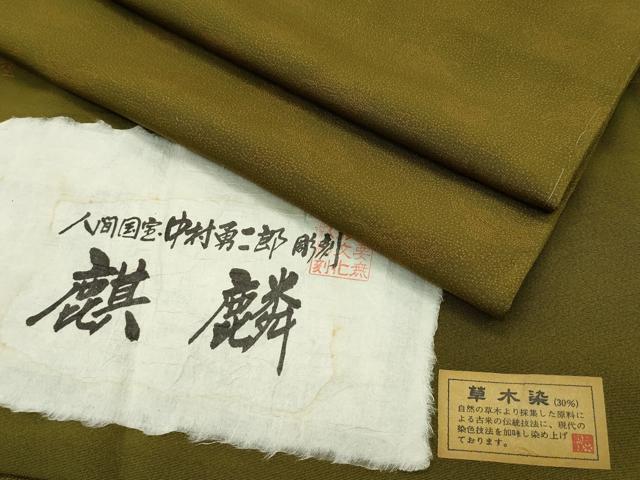 人間国宝 中村勇二郎 彫刻
麒麟
草木染(30%)
自然の草木より採集した原料に
よる古来の伝統技法に、現代の
染色技法を加味し染め上げ
ております。